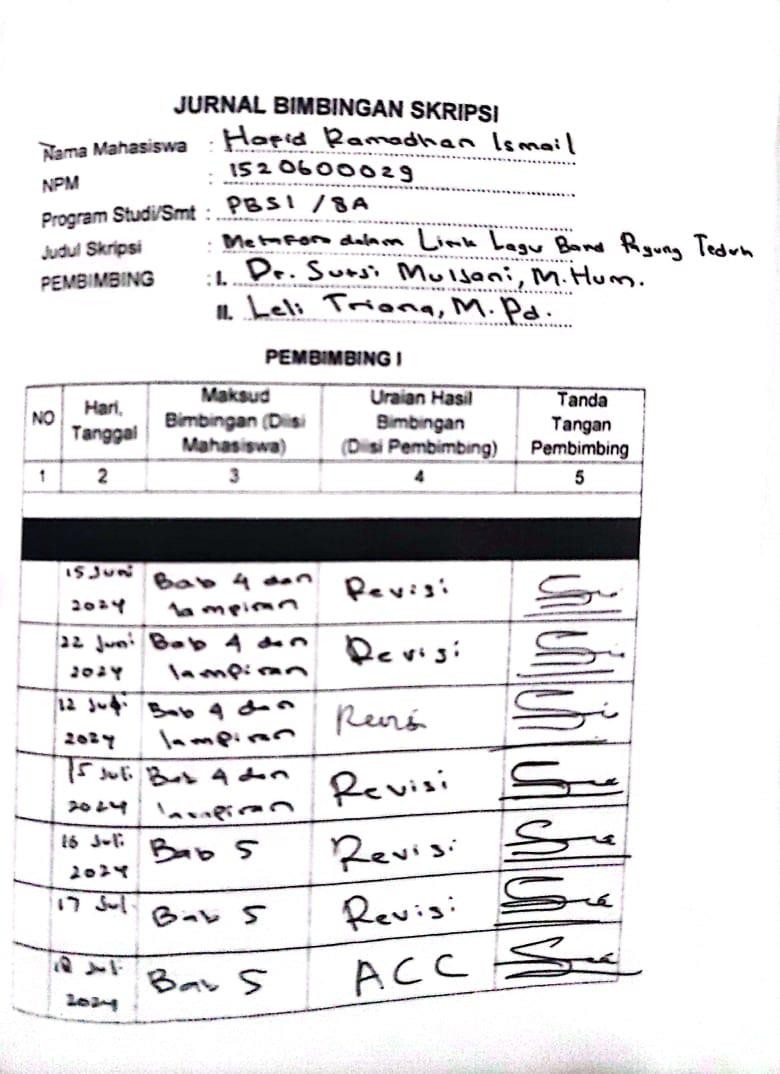 JURNAL BIMBINGAN SKRIPSI
Nama Mahasiswa : Hapid Ramadhan Ismail
NPM : 1520600029
Program Studi/Smt : PBSI / 8A
Judul Skripsi : Metafora dalam Lirik Lagu Band Payung Teduh
PEMBIMBING : I. Dr. Sutji Muljani, M.Hum.
II. Leli Triana, M.Pd.
PEMBIMBING I
NO
Hari, Tanggal
Maksud Bimbingan (Diisi Mahasiswa)
Uraian Hasil Bimbingan (Diisi Pembimbing)
Tanda Tangan Pembimbing
1 2 3 4 5
15 Juni 2024 Bab 4 dan lampiran Revisi
22 Juni 2024 Bab 4 dan lampiran Revisi
12 Juli 2024 Bab 4 dan lampiran Revisi
15 Juli 2024 Bab 4 dan lampiran Revisi
16 Juli 2024 Bab 5 Revisi
17 Jul Bab 5 Revisi
Juli 2024 Bab 5 ACC